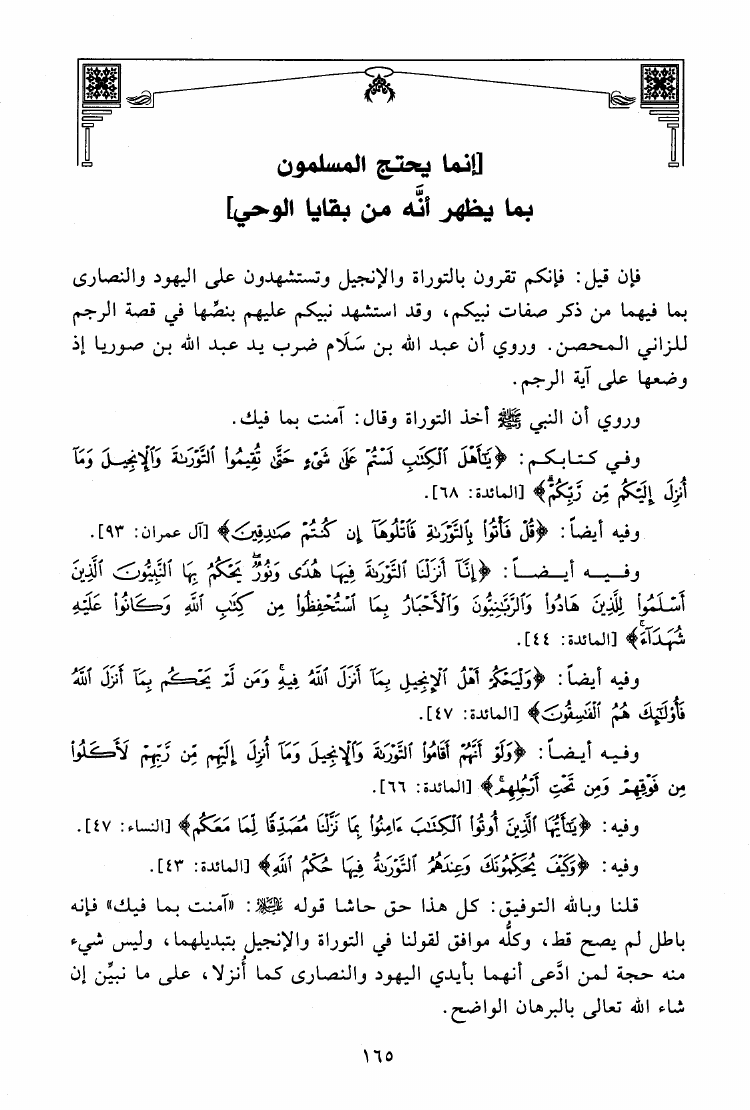 [إنما يحتج المسلمون
بما يظهر أنَّه من بقايا الوحي]
فإن قيل: فإنكم تقرون بالتوراة والإنجيل وتستشهدون على اليهود والنصارى
بما فيهما من ذكر صفات نبيكم، وقد استشهد نبيكم عليهم بنصِّها في قصة الرجم
للزاني المحصن. وروي أن عبد الله بن سَلَام ضرب يد عبد الله بن صوريا إذ
وضعها على آية الرجم.
وروي أن النبي ﷺ أخذ التوراة وقال: آمنت بما فيك.
وفي كتابكم: ﴿يَٰٓأَهْلَ ٱلْكِتَٰبِ لَسْتُمْ عَلَىٰ شَىْءٍ حَتَّىٰ تُقِيمُوا۟ ٱلتَّوْرَىٰةَ وَٱلْإِنجِيلَ وَمَآ
أُنزِلَ إِلَيْكُم مِّن رَّبِّكُمْ ۗ﴾ [المائدة: ٦٨].
وفيه أيضاً: ﴿قُلْ فَأْتُوا۟ بِٱلتَّوْرَىٰةِ فَٱتْلُوهَآ إِن كُنتُمْ صَٰدِقِينَ﴾ [آل عمران: ٩٣].
وفيه أيضاً: ﴿إِنَّآ أَنزَلْنَا ٱلتَّوْرَىٰةَ فِيهَا هُدًى وَنُورٌ ۚ يَحْكُمُ بِهَا ٱلنَّبِيُّونَ ٱلَّذِينَ
أَسْلَمُوا۟ لِلَّذِينَ هَادُوا۟ وَٱلرَّبَّٰنِيُّونَ وَٱلْأَحْبَارُ بِمَا ٱسْتُحْفِظُوا۟ مِن كِتَٰبِ ٱللَّهِ وَكَانُوا۟ عَلَيْهِ
شُهَدَآءَ ۚ﴾ [المائدة: ٤٤].
وفيه أيضاً: ﴿وَلْيَحْكُمْ أَهْلُ ٱلْإِنجِيلِ بِمَآ أَنزَلَ ٱللَّهُ فِيهِ ۚ وَمَن لَّمْ يَحْكُم بِمَآ أَنزَلَ ٱللَّهُ
فَأُو۟لَٰٓئِكَ هُمُ ٱلْفَٰسِقُونَ﴾ [المائدة: ٤٧].
وفيه أيضاً: ﴿وَلَوْ أَنَّهُمْ أَقَامُوا۟ ٱلتَّوْرَىٰةَ وَٱلْإِنجِيلَ وَمَآ أُنزِلَ إِلَيْهِم مِّن رَّبِّهِمْ لَأَكَلُوا۟
مِن فَوْقِهِمْ وَمِن تَحْتِ أَرْجُلِهِم ۚ﴾ [المائدة: ٦٦].
وفيه: ﴿يَٰٓأَيُّهَا ٱلَّذِينَ أُوتُوا۟ ٱلْكِتَٰبَ ءَامِنُوا۟ بِمَا نَزَّلْنَا مُصَدِّقًا لِّمَا مَعَكُم﴾ [النساء: ٤٧].
وفيه: ﴿وَكَيْفَ يُحَكِّمُونَكَ وَعِندَهُمُ ٱلتَّوْرَىٰةُ فِيهَا حُكْمُ ٱللَّهِ﴾ [المائدة: ٤٣].
قلنا وبالله التوفيق: كل هذا حق حاشا قوله عليه السلام: «آمنت بما فيك» فإنه
باطل لم يصح قط، وكلُّه موافق لقولنا في التوراة والإنجيل بتبديلهما، وليس شيء
منه حجة لمن ادَّعى أنهما بأيدي اليهود والنصارى كما أُنزلا، على ما نبيِّن إن
شاء الله تعالى بالبرهان الواضح.
١٦٥